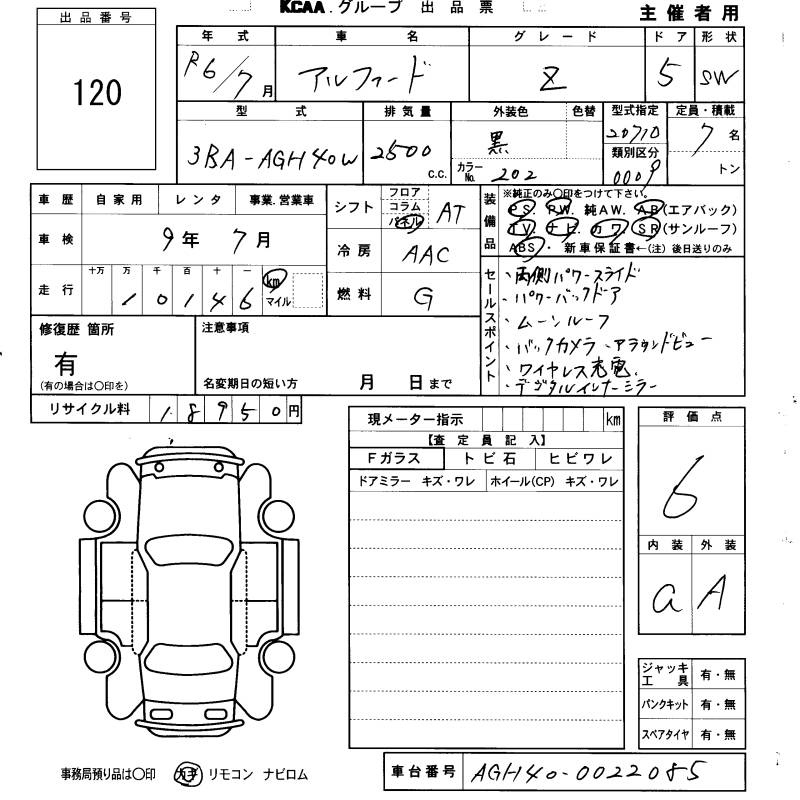 KCAA.グループ 出品票
主催者用
出品番号
120
年式 車名 グレード ドア 形状
R6/7月 アルファード Z 5 SW
型式 排気量 外装色 色替 型式指定 定員・積載
3BA-AGH40W 2500 c.c. 黒 20710 7名
カラーNo. 202 類別区分 0009 トン
車歴 自家用 レンタ 事業.営業車
車検 9年7月
走行 十万 万 千 百 十 一
1 0 1 4 6 km マイル
シフト フロア コラム パネル AT
冷房 AAC
燃料 G
装備品
※純正のみ〇印をつけて下さい。
PS. PW. 純AW. AB(エアバック)
TV. ナビ. カワ. SR(サンルーフ)
ABS・ 新車保証書←(注)後日送りのみ
セールスポイント
・両側パワースライド
・パワーバックドア
・ムーンルーフ
・バックカメラ・アラウンドビュー
・ワイヤレス充電.
・デジタルインナーミラー
修復歴 箇所
有
(有の場合は〇印を)
注意事項
名変期日の短い方 月 日まで
リサイクル料 1 8 9 5 0 円
現メーター指示 km
【査定員記入】
Fガラス トビ石 ヒビワレ
ドアミラー キズ・ワレ ホイール(CP) キズ・ワレ
評価点
6
内装 外装
a A
ジャッキ工具 有・無
パンクキット 有・無
スペアタイヤ 有・無
事務局預り品は〇印 カギ リモコン ナビロム
車台番号 AGH40-0022085